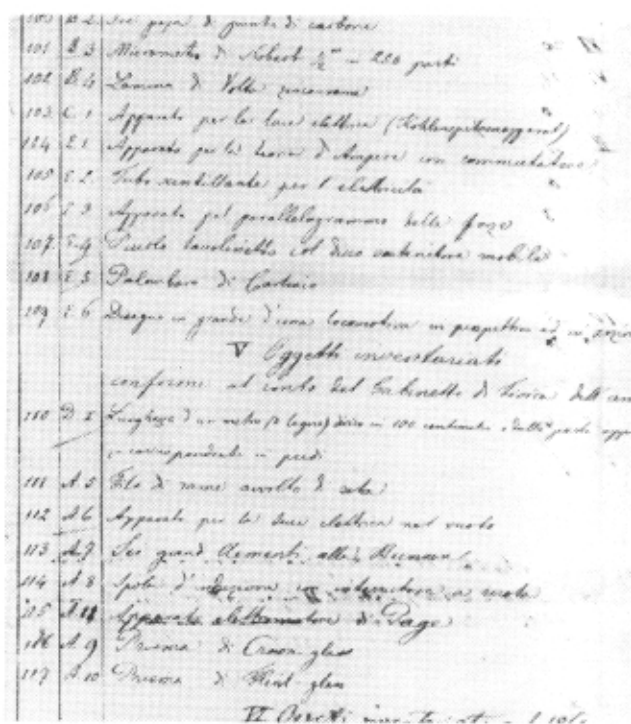 100 B. 2 Sei paja di punte di carbone
101 B. 3 Micrometro di Nobert 1/2''' in 250 parti
102 B. 4 Lamina di Volta
103 C. 1 Apparato per la luce elettrica (Kohlenspitzenapparat)
104 E. 1 Apparato per la teoria d'Ampere con commutatore
105 E. 2. Tubo scintillante per l'elettricità
106 E. 3 Apparato pel parallelogrammo delle forze
107. E. 4 Piccolo tavolinetto col disco mobile
108 E. 5 Palombaro di Cartesio
109 E. 6 Disegno in grande d'una locomotiva in prospettiva ed in
V Oggetti inventariati
conformi al conto del Gabinetto di Fisica dell'
110 D. 1 Lunghezza d'un metro (di legno) diviso in 100 centimetri dalla parte
corrispondente in piedi
111 A. 5 Filo di rame avvolto di seta
112 A. 6 Apparato per la luce elettrica nel vuoto
113 A. 7 Sei grandi Elementi alla Bunsen
114 A. 8 Spola d'induzione interruttore a ruota
115 A. 11 Apparato elettromotore di Page
116 A. 9 Prisma di Crown-glass
117 A. 10 Prisma di Flint-glass
VI Oggetti